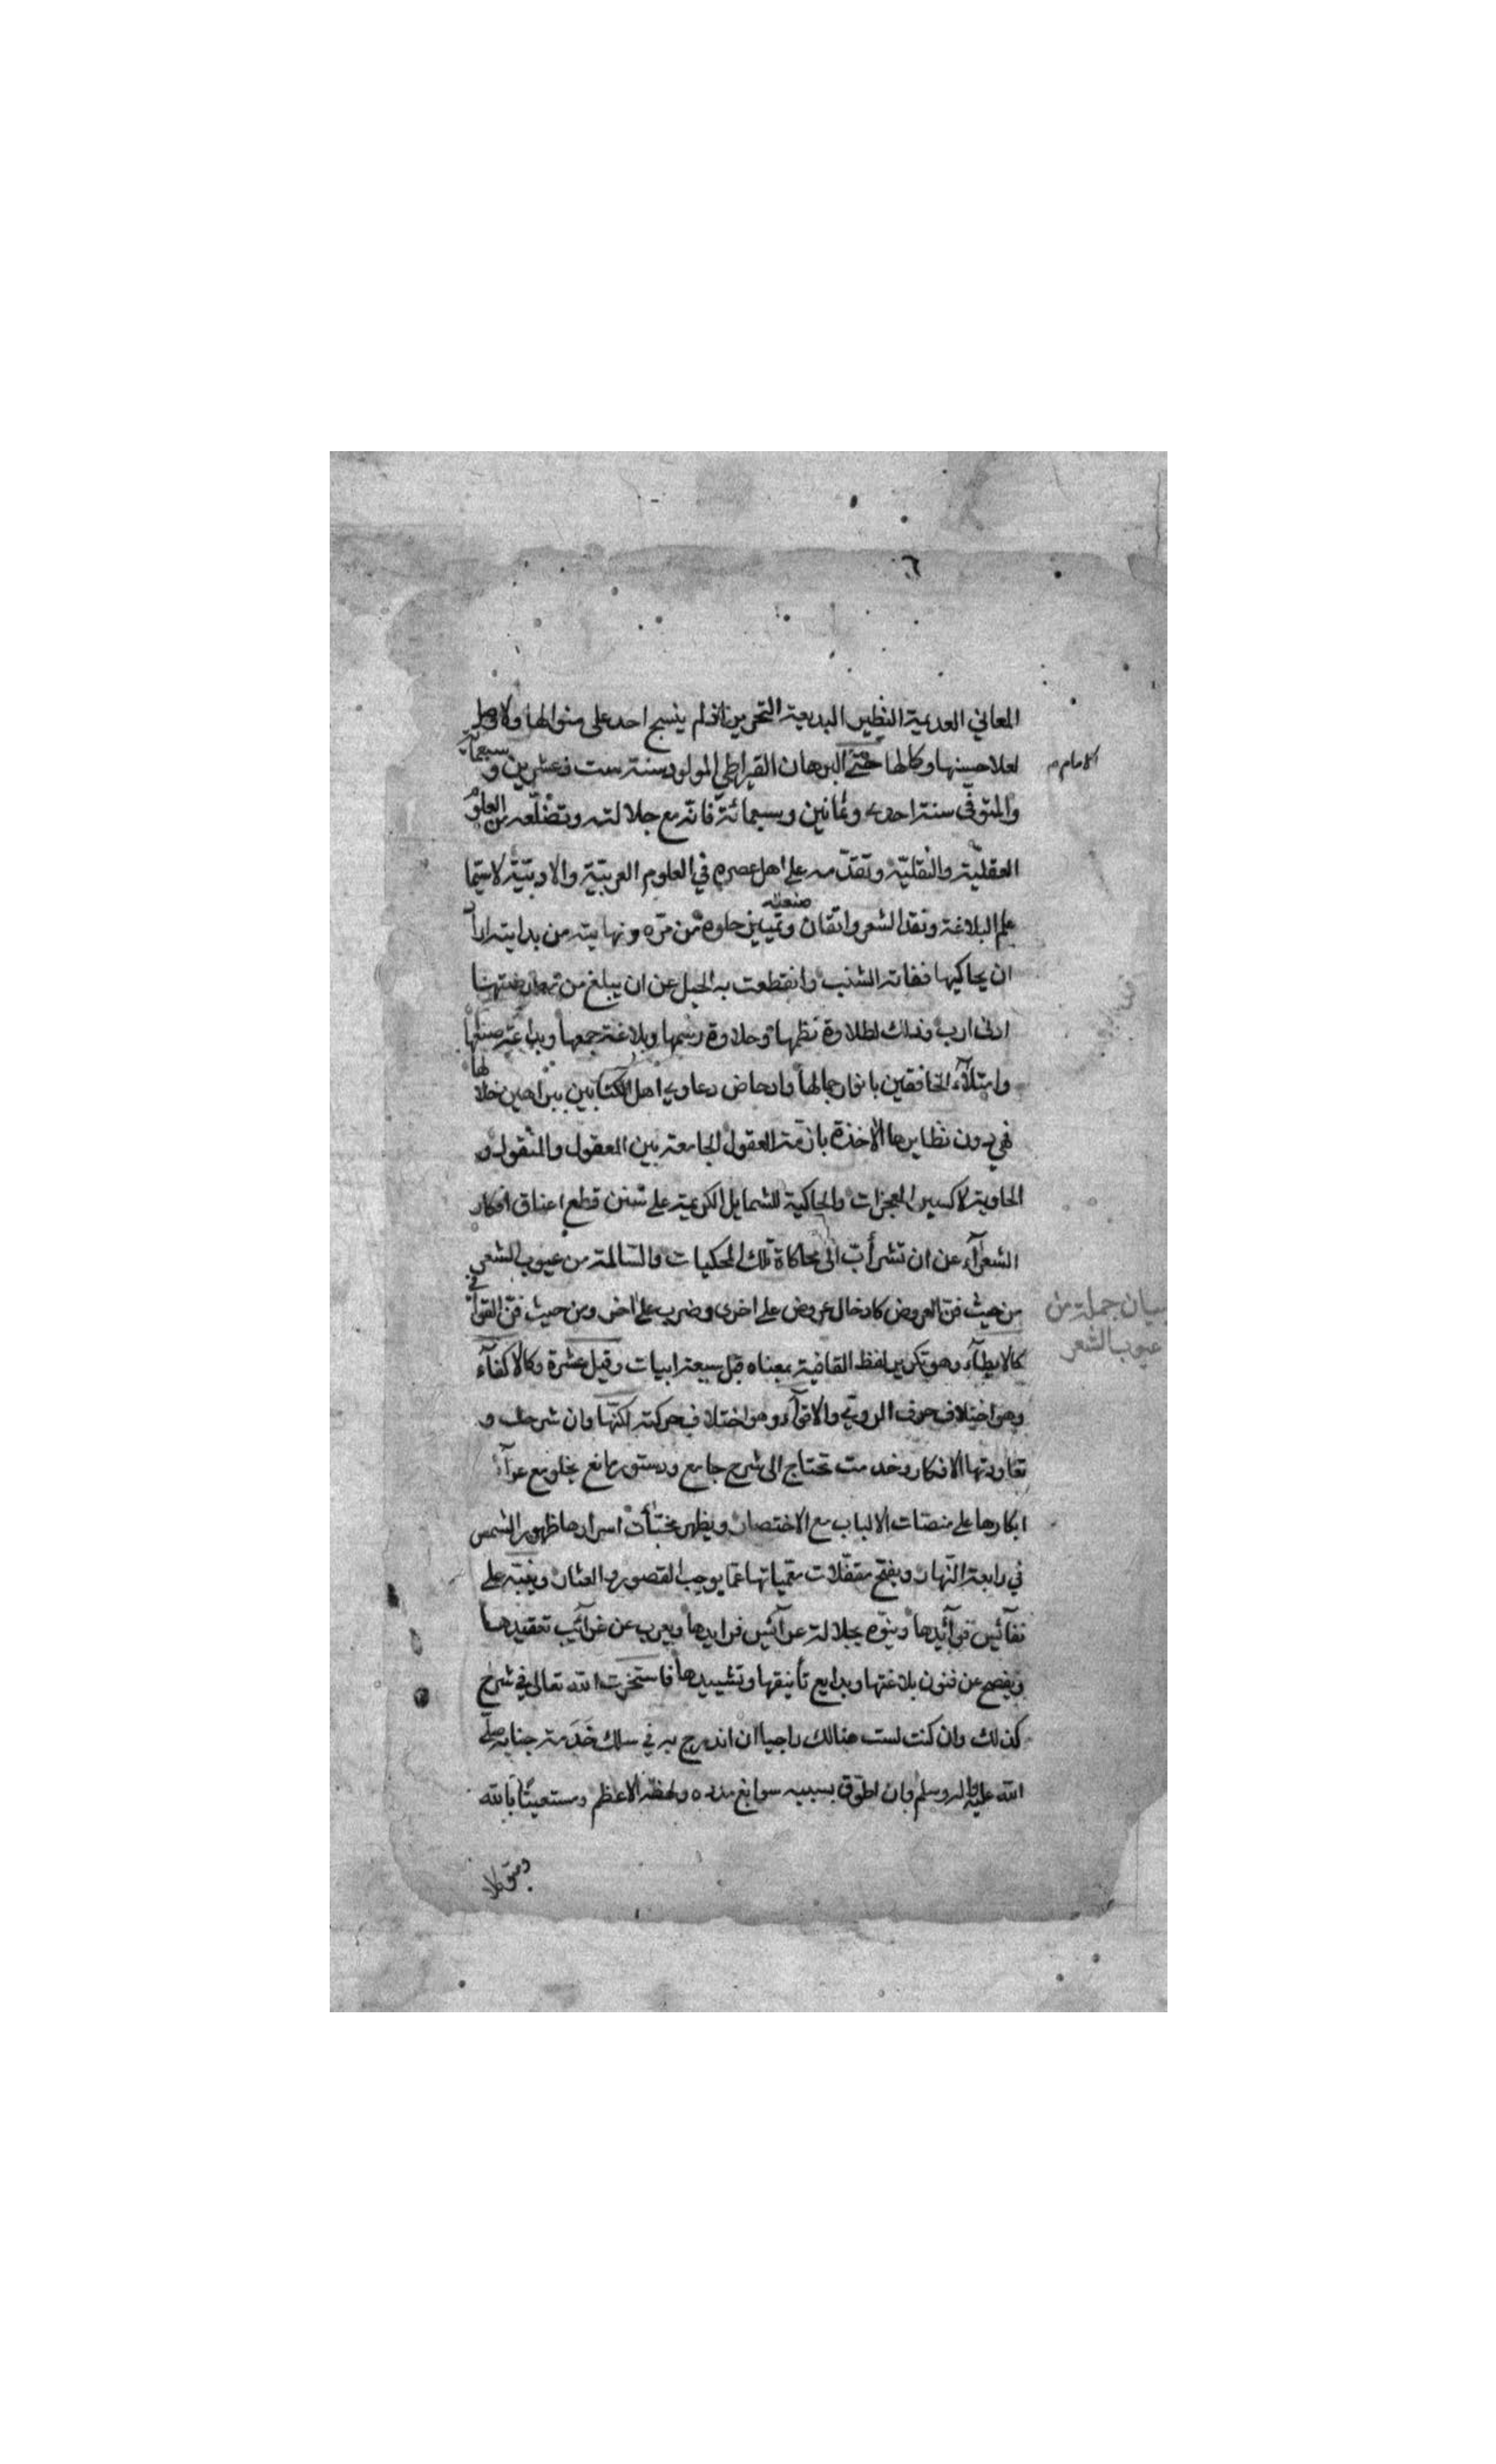 ٦
المعاني العديمة النظير البديعة التحرير اذ لم ينسج احد على منوالها ولا وصل
لعلا حسنها وكمالها حتى البرهان القيراطي المولود سنة ست وعشرين وسبعمائة
الامام
والمتوفى سنة احدى وثمانين وسبعمائة فانه مع جلالته وتضلعه من العلوم
العقليّة والنقليّة وتقدّمه على اهل عصره في العلوم العربيّة والادبيّة لاسيّما
علم البلاغة ونقد الشعر واتقان صنعته وتمييز حلوه من مرّه ونهايته من بدايته اراد
ان يحاكيها ففاته الشنب وانقطعت به الحيل عن ان يبلغ من معارضتها
ادنى ارب وذلك لطلاوة نظمها وحلاوة رسمها وبلاغة جمعها وبداعة صنعها
وامتلآء الخافقين بانوار جمالها وادحاض دعاوي اهل الكتابين ببراهين جلالها
فهي دون نظايرها الآخذة بازمّة العقول الجامعة بين المعقول والمنقول و
الحاوية لاكسير المعجزات والحاكية للشمايل الكريمة على سنن قطع اعناق افكار
الشعرآء عن ان تشرأبّ الى محاكاة تلك المحكيات والسالمة من عيوب الشعر
من حيث فنّ العروض كادخال عروض على اخرى وضرب على اخر ومن حيث فنّ القوافي
بيان جملة من
عيوب الشعر
كالايطآء وهو تكرير لفظ القافية بمعناه قبل سبعة ابيات وقيل عشرة وكالاكفآء
وهو اختلاف حرف الروي والاقوآء وهو اختلاف حركته لكنّها وان شرحت و
تعاورتها الافكار وخدمت تحتاج الى شرح جامع ودستور مانع يجلو مع عرآئس
ابكارها على منصّات الالباب مع الاختصار ويظهر مخبّآت اسرارها ظهور الشمس
في رابعة النّهار ويفتح مقفّلات معمياتها عمّا يوجب القصور والعثار وينبّه على
نفآئس فرآئدها وينوّه بجلالة عرآئس فرايدها ويعرب عن غرآئب تعقيدها
ويفصح عن فنون بلاغتها وبدايع تأنيقها وتشييدها فاستخرت الله تعالى في شرح
كذلك وان كنت لست هنالك راجيا ان اندرج به في سلك خَدَمة جنابه صلى
الله عليه واله وسلم وبان اطوّق بسببه سوابغ مدده ولحظه الاعظم ومستعينًا بالله
ومتوكلا